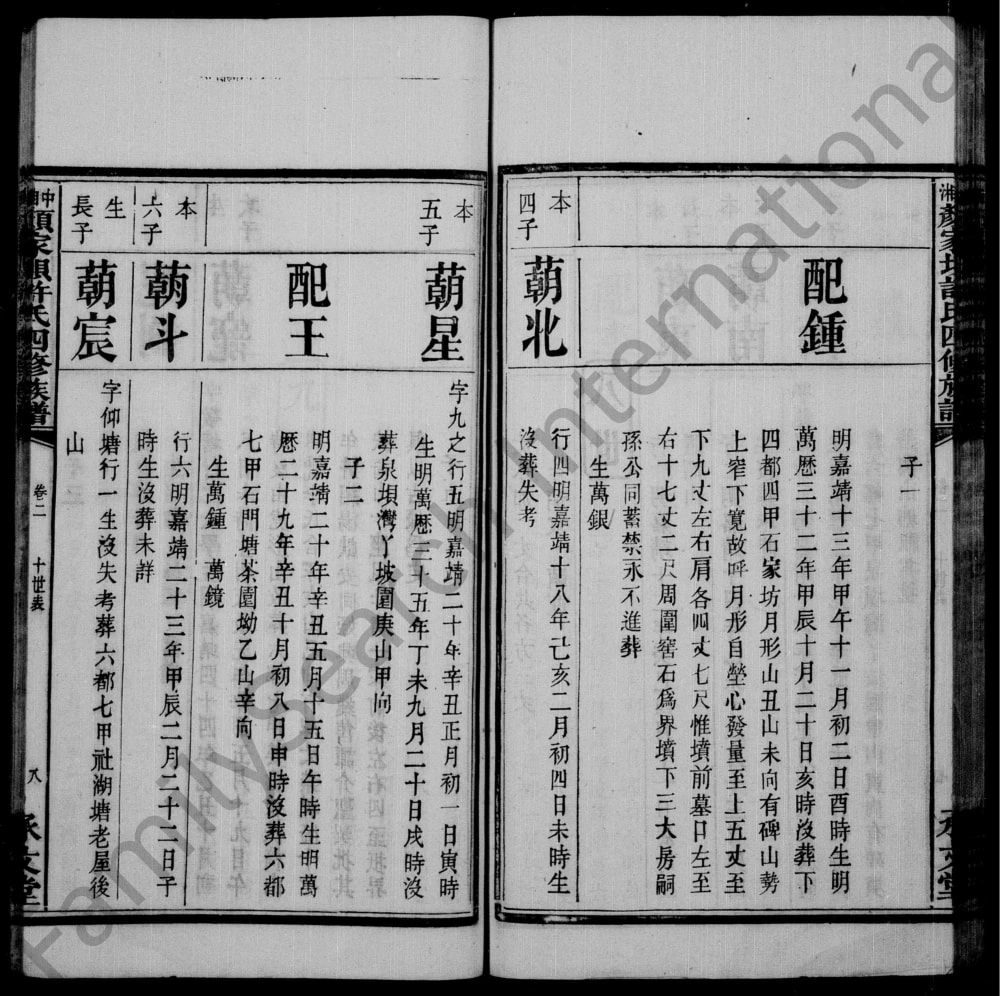 湘
顏家垻許氏四修族譜
承文堂
子一
配鍾
明嘉靖十三年甲午十一月初二日酉時生明
萬歷三十二年甲辰十月二十日亥時沒葬下
四都四甲石家坊月形山丑山未向有碑山勢
上窄下寬故呼月形自塋心發量至上五丈至
下九丈左右肩各四丈七尺惟墳前墓口左至
右十七丈二尺周圍窖石爲界墳下三大房嗣
孫公同蓄禁永不進葬
生萬銀
本
四子
朝北
行四明嘉靖十八年己亥二月初四日未時生
沒葬失考
本
五子
朝星
字九之行五明嘉靖二十年辛丑正月初一日寅時
生明萬歷三十五年丁未九月二十日戌時沒
葬泉垻灣丫坡園庚山甲向
子二
配王
明嘉靖二十年辛丑五月十五日午時生明萬
歷二十九年辛丑十月初八日申時沒葬六都
七甲石門塘茶園坳乙山辛向
生萬鍾 萬鏡
本
六子
朝斗
行六明嘉靖二十三年甲辰二月二十二日子
時生沒葬未詳
生
長子
朝宸
字仰塘行一生沒失考葬六都七甲社湖塘老屋後
山
中湘顏家垻許氏四修族譜
卷二
十世表
八
承文堂
FamilySearch International